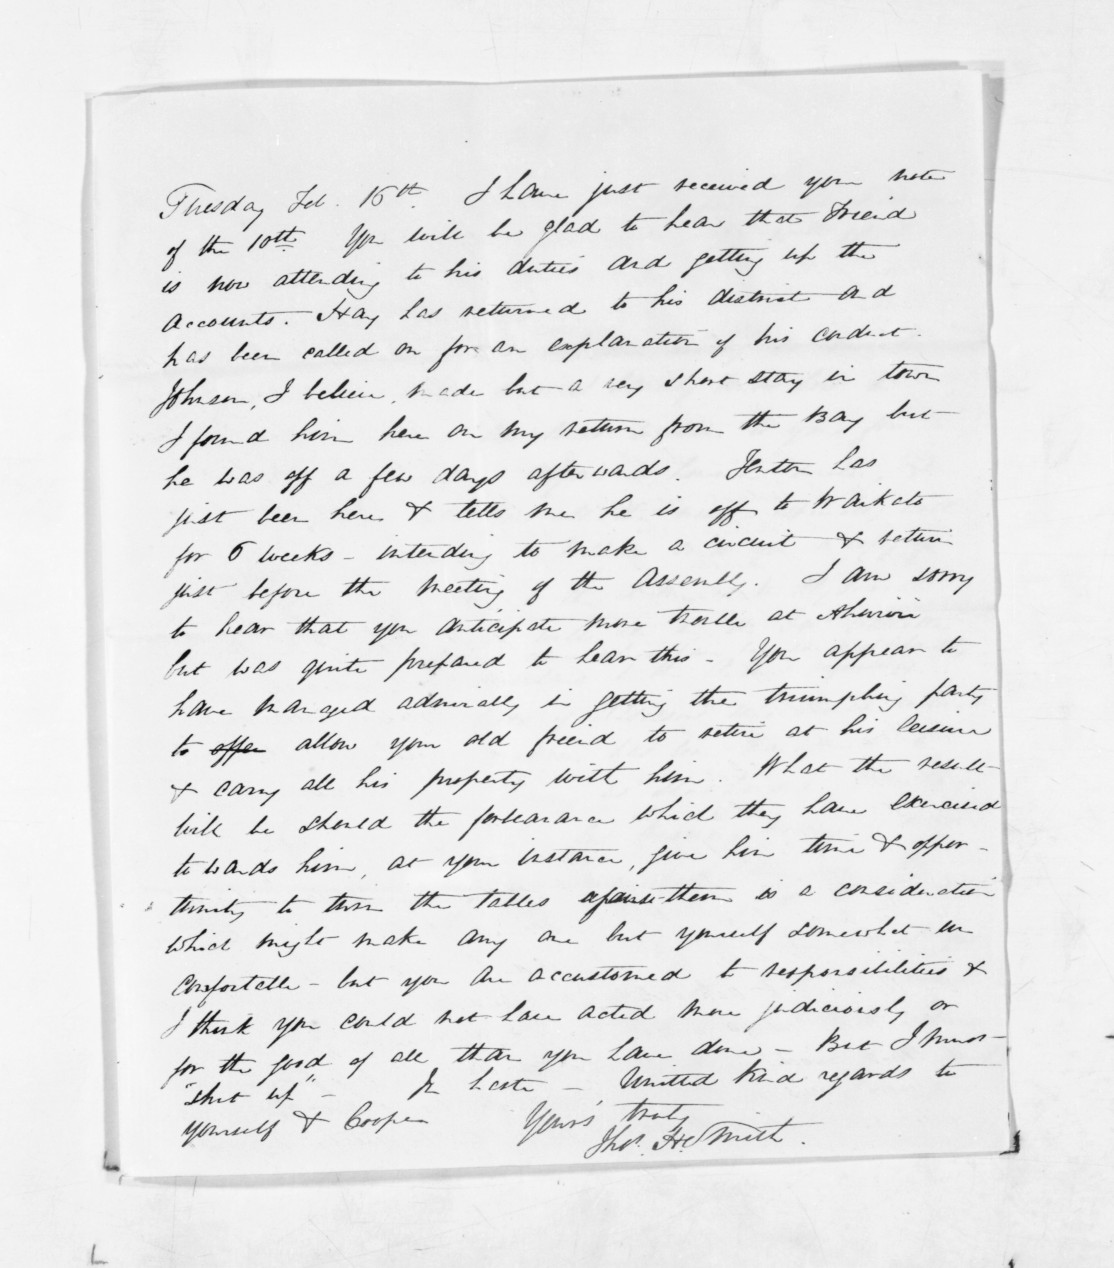 Tuesday Feb. 16th. I have just received your note
of the 10th. You will be glad to hear that Friend
is now attending to his duties and getting up the
accounts. Hay has returned to his district and
has been called on for an explanation of his conduct.
Johnson, I believe, made but a very short stay in town
I found him here on my return from the Bay but
he was off a few days afterwards. Fenton has
just been here & tells me he is off to Waikato
for 6 weeks - intending to make a circuit & return
just before the meeting of the Assembly. I am sorry
to hear that you anticipate more trouble at Ahuriri
but was quite prepared to hear this - You appear to
have managed admirably in getting the triumphing party
to offer allow your old friend to retire at his leisure
& carry all his property with him. What the result
will be should the forbearance which they have exercised
towards him, at your instance, give him time & oppor-
tunity to turn the tables against them is a consideration
which might make any one but yourself somewhat un
comfortable - but you are accustomed to responsibilities &
I think you could not have acted more judiciously or
for the good of all than you have done - But I must
"shut up" - In haste - United kind regards to
yourself & Cooper
Yours truly
Thos. H. Smith.